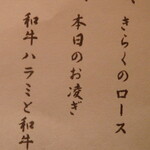 、きらくのロース
、本日のお凌ぎ
和牛ハラミと和牛